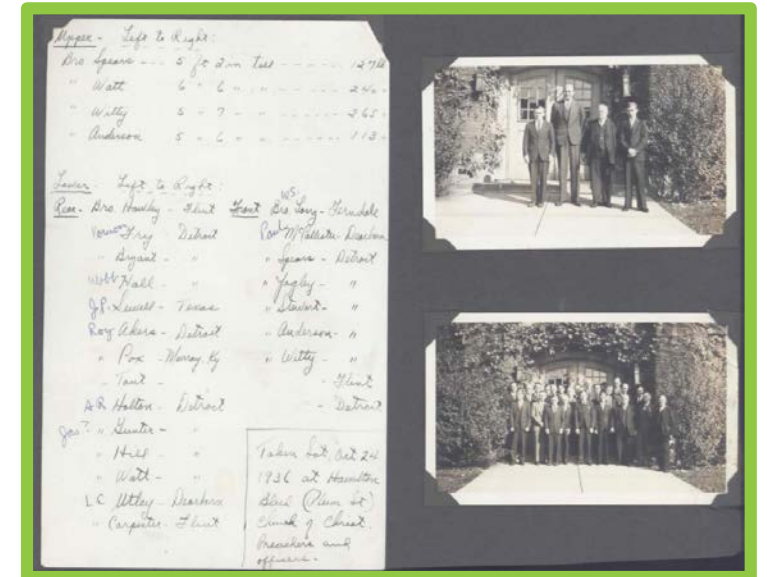 Upper - Left to Right:
Bro Spears --- 5 ft 2 in tall ----- 127 lb
" Watt 6 " 6 " " ------ 240 "
" Witty 5 - 7 " " ------ 265 "
" Anderson 5 - 6 " " ------ 113 "
Lower - Left to Right:
Rear - Bro. Hawley - Flint
Vernon Fry Detroit
" Bryant - "
Webb Hall - "
J.P. Sewell - Texas
Roy Akers - Detroit
" Pox - Murray, Ky
" Tant -
A.R. Holton - Detroit
Jas? " Gunter - "
" Hill - "
" Watt - "
L C Utley - Dearborn
" Carpenter - Flint
W.S.
Front Bro. Long - Ferndale
Paul McCallister - Dearborn
" Spears - Detroit
" Yagley - "
" Stewart - "
" Anderson - "
" Witty - "
- Flint
- Detroit
Taken Sat, Oct 24
1936 at Hamilton
Blvd (Plum St)
Church of Christ.
Preachers and
officers.